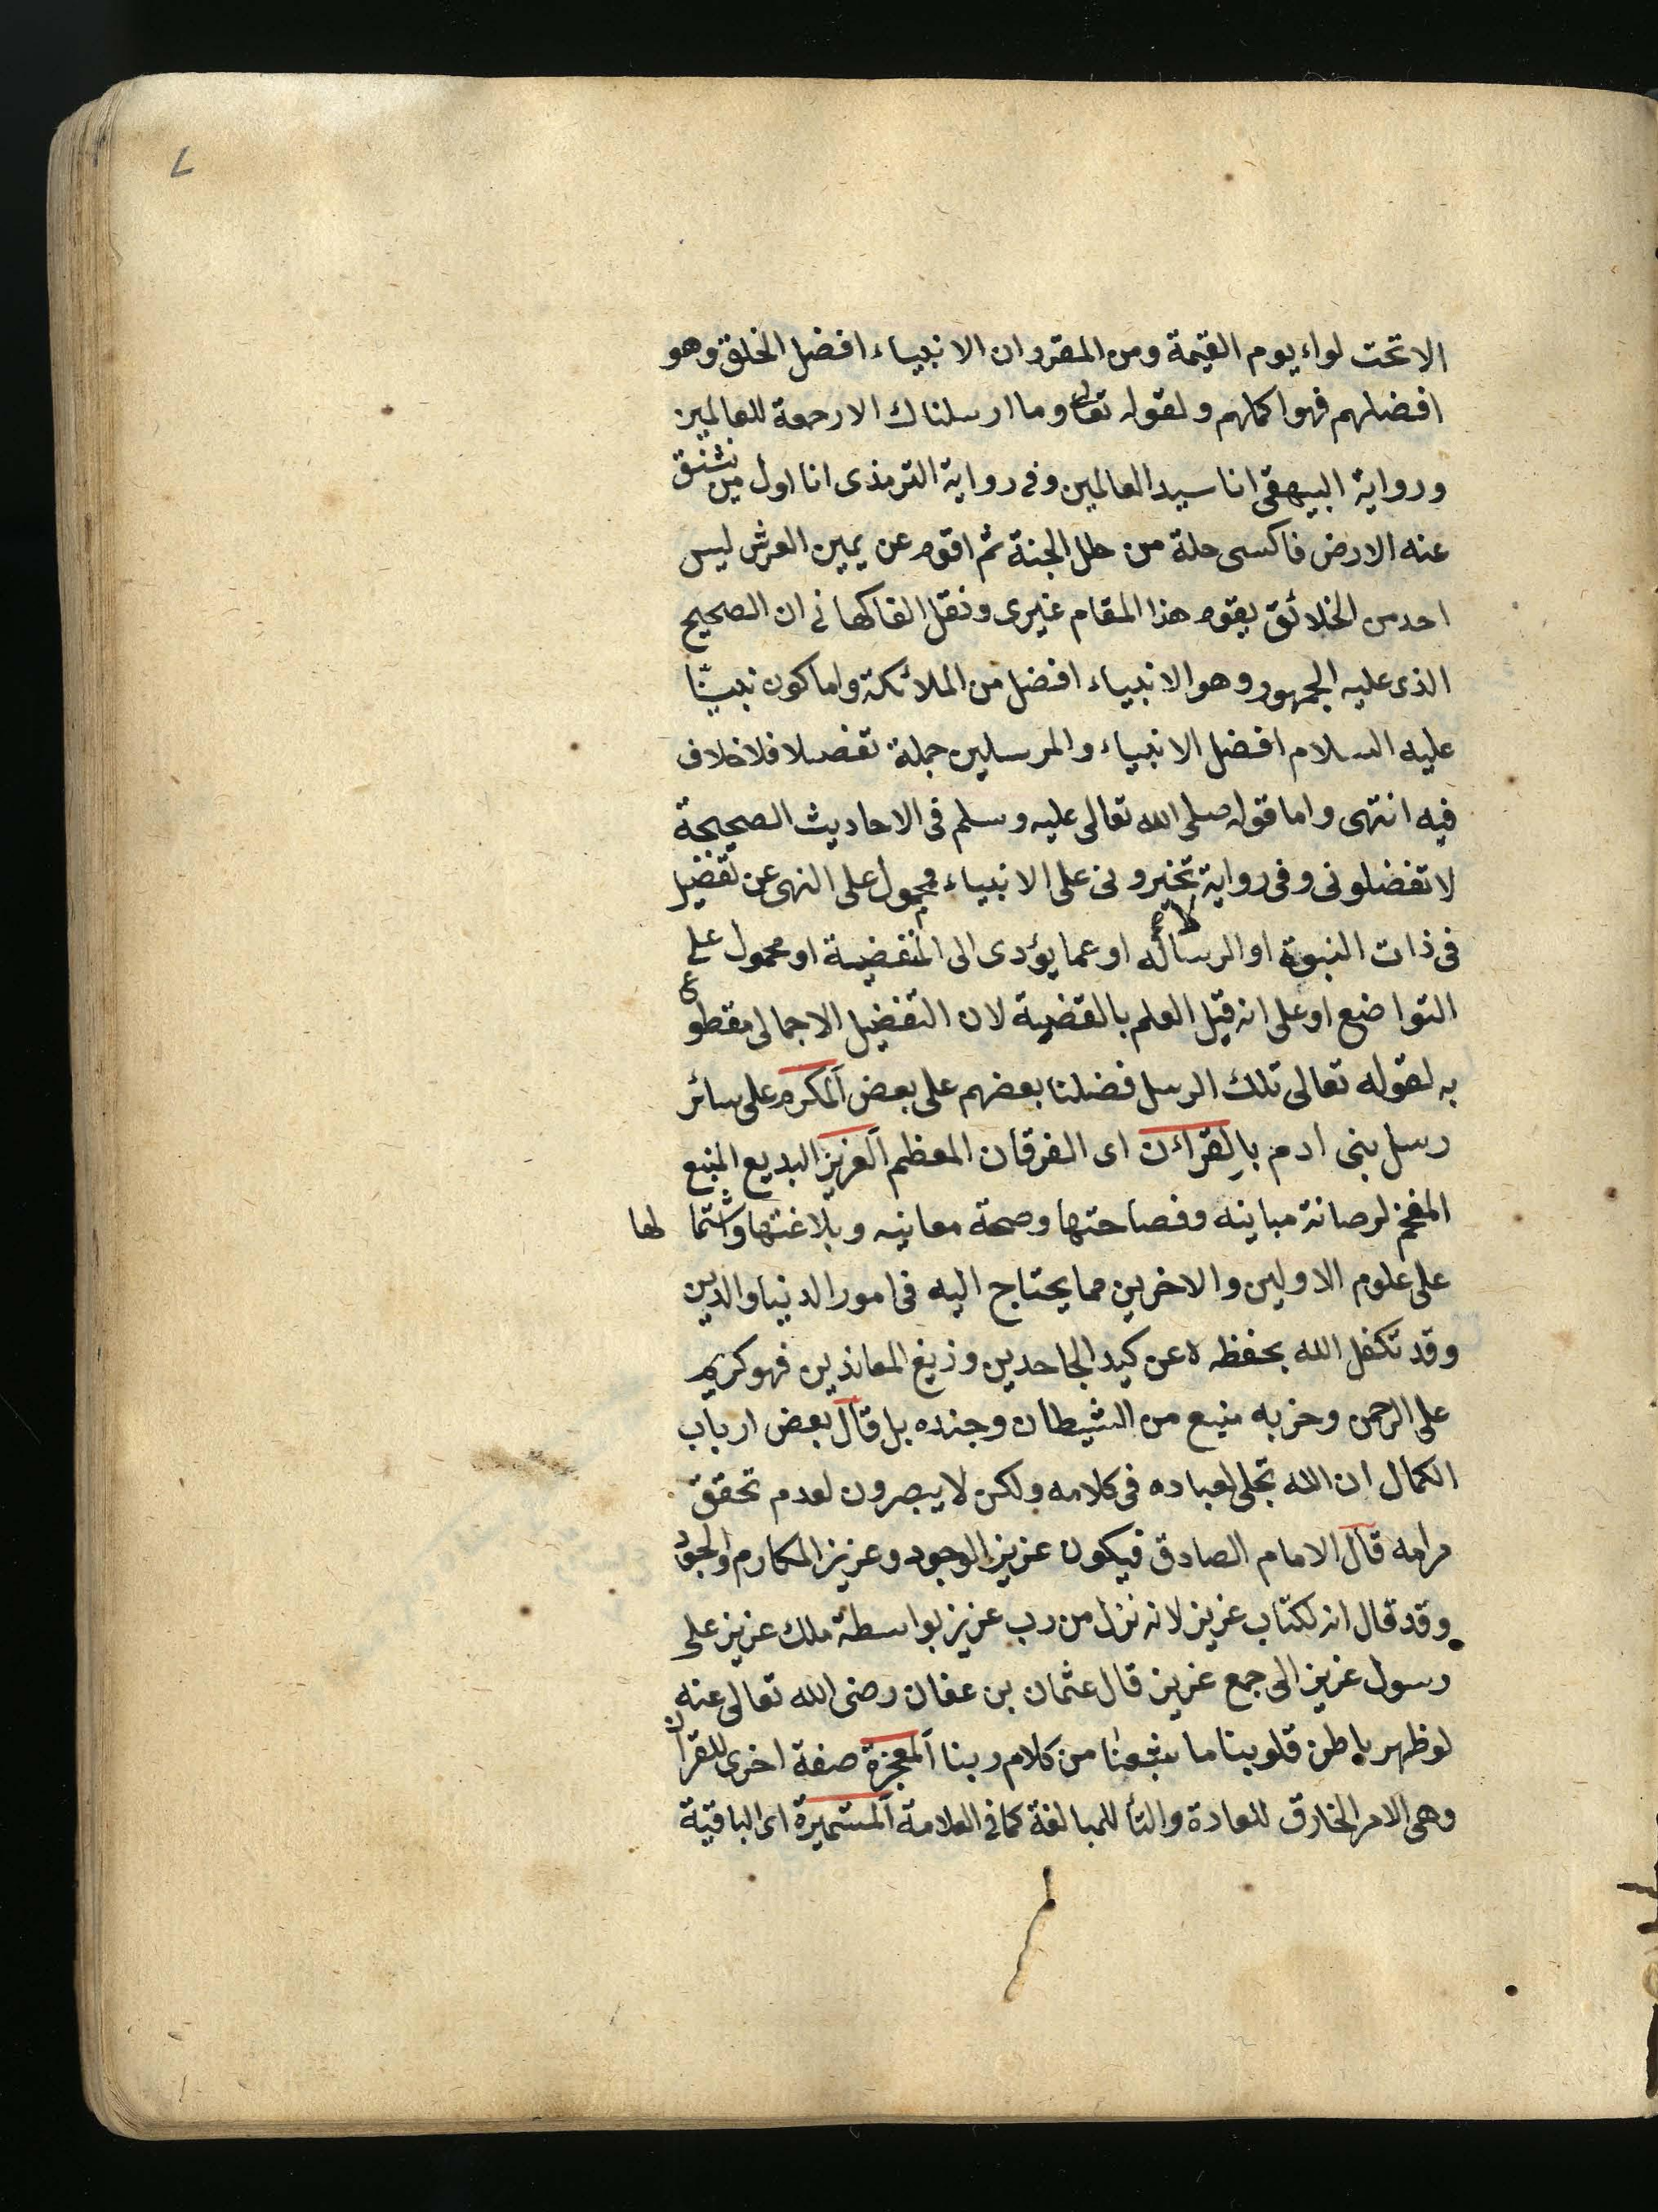 ٧
الا تحت لواء يوم القيمة ومن المقرر ان الانبياء افضل الخلق وهو
افضلهم فهو اكملهم ولقوله تعالى وما ارسلناك الا رحمة للعالمين
ورواية البيهقى انا سيد العالمين وفى رواية الترمذى انا اول من تنشق
عنه الارض فاكسى حلة من حلل الجنة ثم اقوم عن يمين العرش ليس
احد من الخلائق يقوم هذا المقام غيرى ونقل الفاكهانى ان الصحيح
الذى عليه الجمهور وهو الانبياء افضل من الملائكة واما كون نبينا
عليه السلام افضل الانبياء والمرسلين جملة تفصلا فلا خلاف
فيه انتهى واما قوله صلى الله تعالى عليه وسلم فى الاحاديث الصحيحة
لا تفضلونى وفى رواية لا تخيرونى على الانبياء فمحمول على النهى عن تفضيل
فى ذات النبوة او الرسالة او عما يؤدى الى المنقضية او محمول على
التواضع او على انه قيل العلم بالقضية لان التفضيل الاجمالى مقطوع
به لقوله تعالى تلك الرسل فضلنا بعضهم على بعض المكرم على سائر
رسل بنى ادم بالقراءن اى الفرقان المعظم العزيز البديع المنيع
المفخم لرصانة مبانيه وفصاحتها وصحة معانيه وبلاغتها واشتمالها
على علوم الاولين والاخرين مما يحتاج اليه فى امور الدنيا والدين
وقد تكفل الله بحفظه ه عن كيد الجاحدين وزيغ المعاندين فهو كريم
على الرحمن وحزبه منيع من الشيطان وجنده بل قال بعض ارباب
الكمال ان الله تجلى لعباده فى كلامه ولكن لا يبصرون لعدم تحقق
مرامه قال الامام الصادق فيكون عزيز الوجود وعزيز المكارم والجود
وقد قال انه لكتاب عزيز لانه نزل من رب عزيز بواسطة ملك عزيز على
رسول عزيز الى جمع عزيز قال عثمان بن عفان رضى الله تعالى عنه
لو ظهر باطن قلوبنا ما شبعنا من كلام ربنا المعجزة صفة اخرى للقران
وهى الامر الخارق للعادة والتأ للمبالغة كما فى العلامة المستميرة اى الباقية